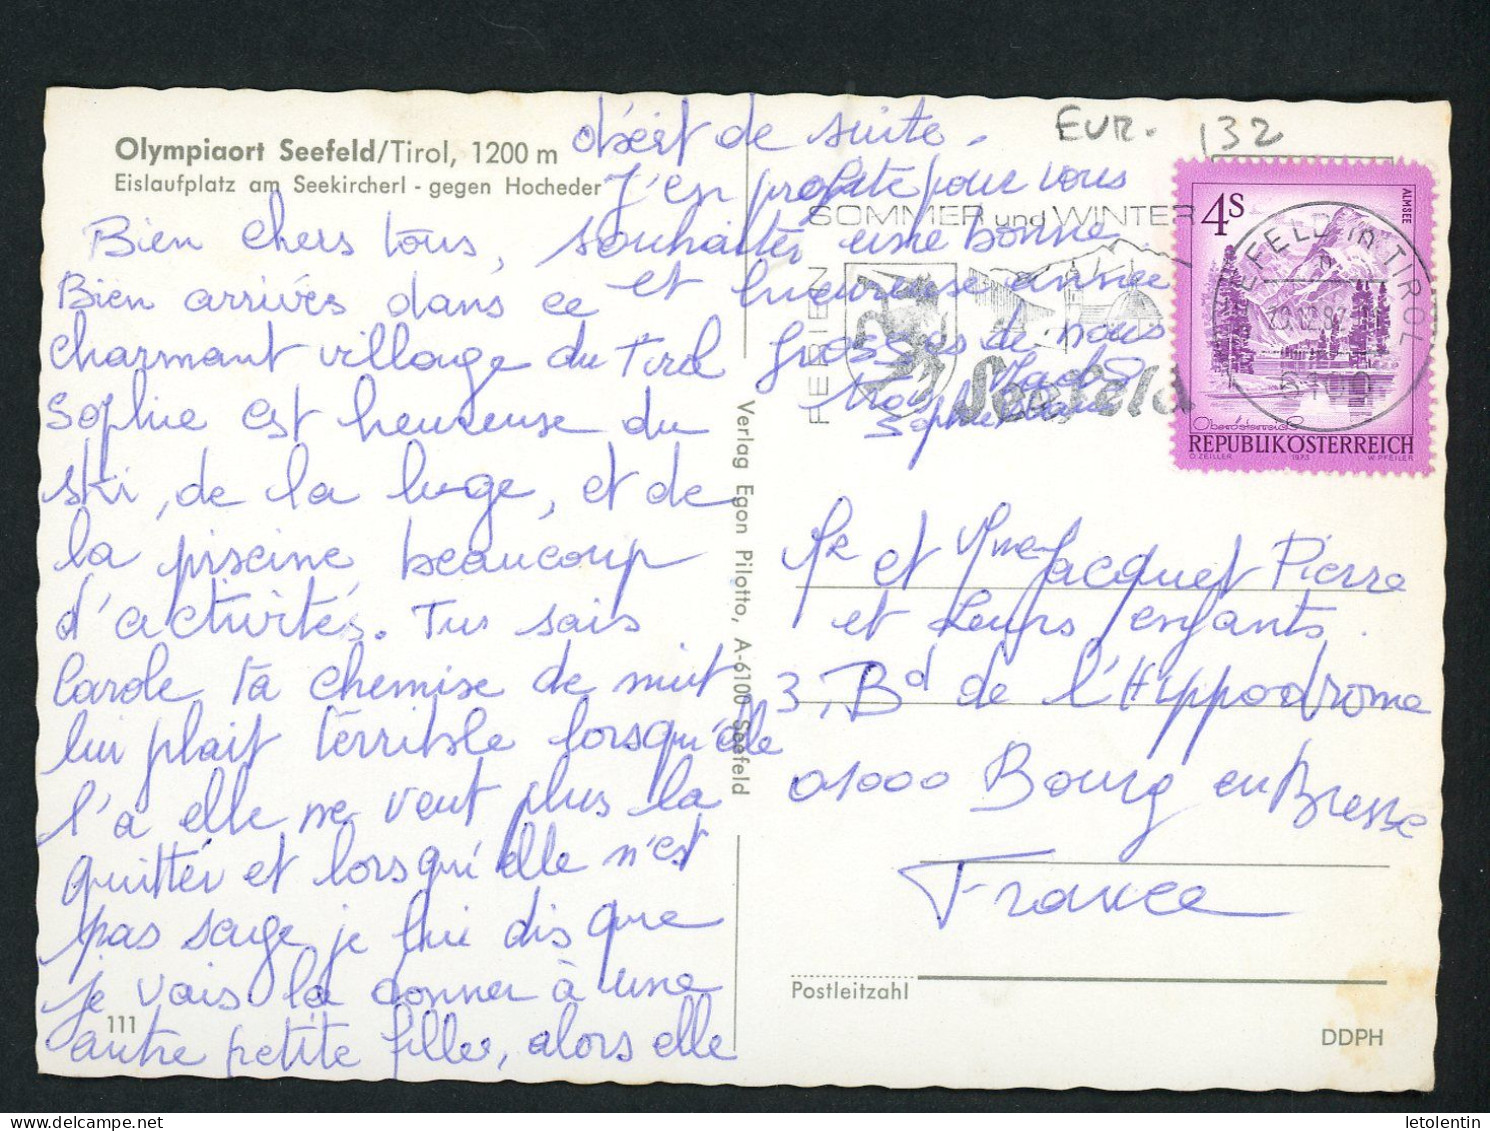 Olympiaort Seefeld/Tirol, 1200 m
Eislaufplatz am Seekircherl - gegen Hocheder
Bien chers tous,
Bien arrivés dans ce
charmant village du Tirol
Sophie est heureuse du
ski, de la luge, et de
la piscine beaucoup
d'activités. Tus sais
Carole ta chemise de nuit
lui plait terrible lorsqu'elle
l'a elle ne veut plus la
quitter et lorsqu'elle n'est
pas sage je lui dis que
je vais la donner à une
autre petite fille, alors elle
111
obéit de suite.
J'en profite pour vous
souhaiter une bonne
et heureuse année
Grosses de nous
Sophie
Verlag Egon Pilotto, A-6100 Seefeld
EUR. 132
SOMMER und WINTER
FERIEN
Seefeld
4S
ALMSEE
SEEFELD in TIROL
Oberösterreich
REPUBLIK ÖSTERREICH
O. ZEILLER 1973 W. PFEILER
Mr et Mme Jacquet Pierre
et Leurs enfants.
3, Bd de l'Hippodrome
01000 Bourg en Bresse
France
Postleitzahl
DDPH
letolentin